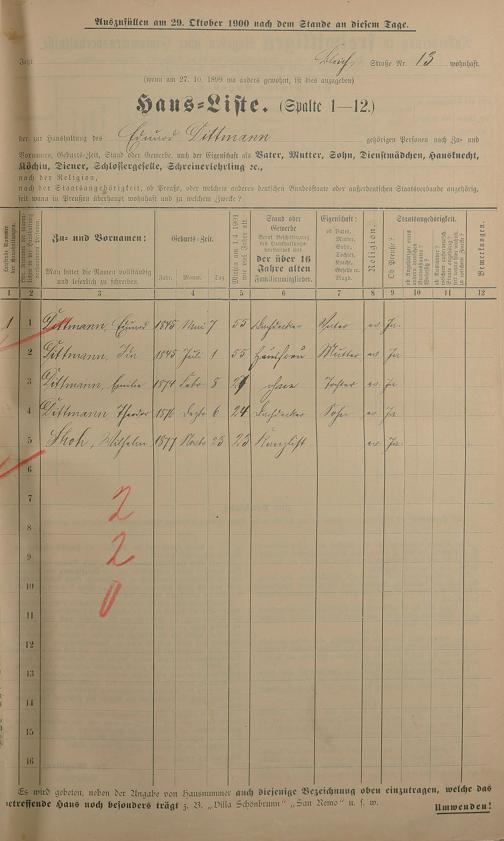 Auszufüllen am 29. Oktober 1900 nach dem Stande an diesem Tage.
Jetzt Straße Nr. 13 wohnhaft.
(wenn am 27. 10. 1899 wo anders gewohnt, ist dies anzugeben)
Haus-Liste. (Spalte 1—12.)
der zur Haushaltung des Eduard Dittmann gehörigen Personen nach Zu- und
Vornamen, Geburts-Zeit, Stand oder Gewerbe, und der Eigenschaft als Vater, Mutter, Sohn, Dienstmädchen, Hausknecht,
Köchin, Diener, Schlossergeselle, Schreinerlehrling ꝛc.,
nach der Religion,
nach der Staatsangehörigkeit, ob Preuße, oder welchem anderen deutschen Bundesstaate oder außerdeutschen Staatsverbande angehörig,
seit wann in Preußen überhaupt wohnhaft und zu welchem Zwecke?
Zu- und Vornamen:
Man bittet die Namen vollständig
und leserlich zu schreiben.
Geburts-Zeit.
Jahr. Monat. Tag
Werden am 1. 4. 1901
wie viel Jahre alt.
Stand oder
Gewerbe
der über 16
Jahre alten
Familienmitglieder.
Eigenschaft:
ob Vater,
Mutter,
Sohn,
Tochter,
Knecht,
Magd.
Religion.
Staatsangehörigkeit.
Ob Preuße?
Bemerkungen.
1 2 3 4 5 6 7 8 9 10 11 12
1 1 Dittmann, Eduard 1845 Mai 7 55 Dachdecker Vater ev Ja
2 Dittmann, 1845 Juli 1 55 Hausfrau Mutter ev Ja
3 Dittmann, Emilie 1874 Febr 8 27 ohne Tochter ev Ja
4 Dittmann Theodor 1876 Dezbr 6 24 Dachdecker Sohn ev Ja
5 Wilhelm 1877 23 23 Kanzlist ev Ja
6
7
8
9
10
11
12
13
14
15
16
2
2
0
Es wird gebeten, neben der Angabe von Hausnummer auch diejenige Bezeichnung oben einzutragen, welche das
betreffende Haus noch besonders trägt z. B. „Villa Schönbrunn" „San Remo" u. s. w.
Umwenden!